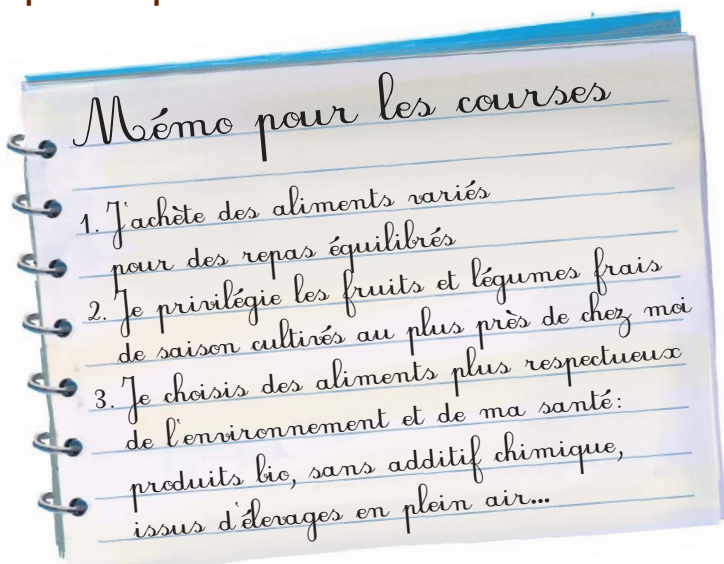 Mémo pour les courses
1. J'achète des aliments variés
pour des repas équilibrés
2. Je privilégie les fruits et légumes frais
de saison cultivés au plus près de chez moi
3. Je choisis des aliments plus respectueux
de l'environnement et de ma santé:
produits bio, sans additif chimique,
issus d'élevages en plein air...